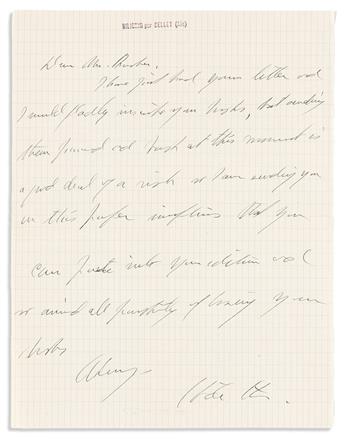 MILIEU par CELLET (Ain)
Dear Mr.
I have just had your letter and
I would gladly inscribe your books, but sending
them forward and back at this moment is
a good deal of a risk so have sending you
on this paper inscriptions that you
can paste into your edition and
so avoid all possibility of losing your
books
Always